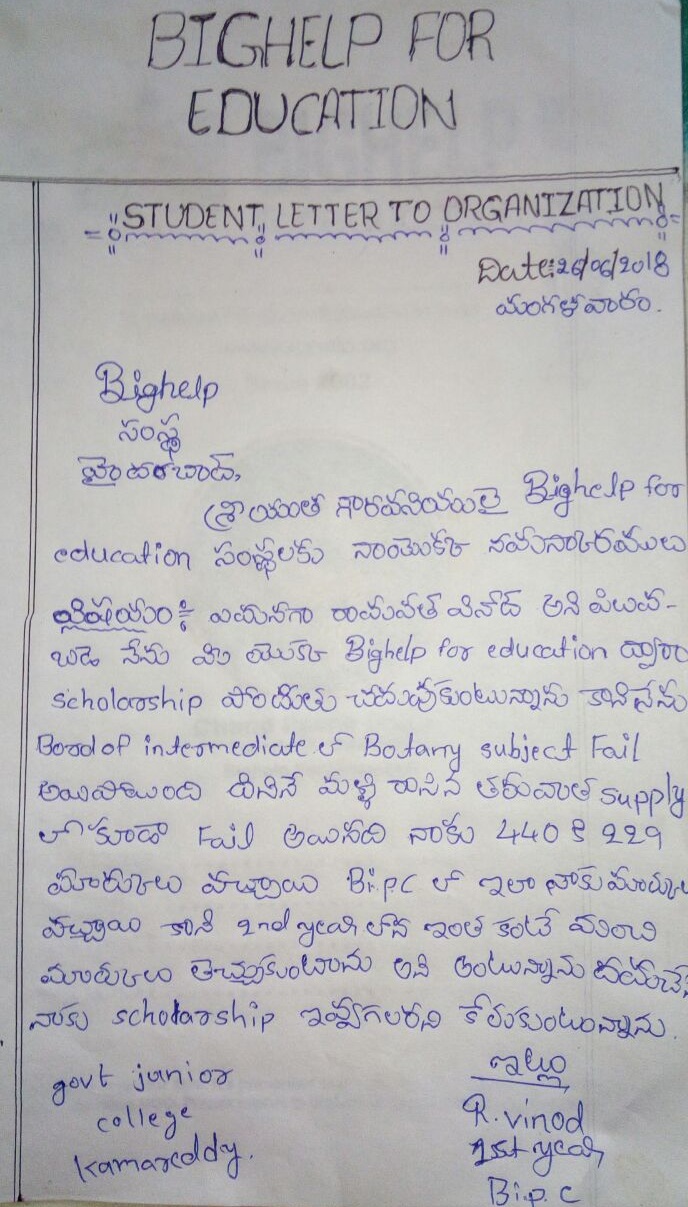 BIGHELP FOR
EDUCATION
STUDENT LETTER TO ORGANIZATION
Date:26/06/2018
మంగళవారం.
Bighelp
సంస్థ
హైదరబాద్,
శ్రీయుత గౌరవనియులై Bighelp for
education సంస్థలకు నాయొక్క నమస్కారములు
విషయం: ఏమనగా రామవత్ వినోద్ అని పిలువ-
బడె నేను మీ యొక్క Bighelp for education ద్వారా
scholarship పొందుతు చదువుకుంటున్నాను కాని నేను
Boad of intermediate లో Botany subject Fail
అయిపోయింది దినినే మళ్ళి రాసిన తరువాత supply
లో కూడా Fail అయినది నాకు 440 కి 229
మార్కులు వచ్చాయి Bi.p.c లో ఇలా నాకు మార్కులు
వచ్చాయి కాని 2nd year లోన ఇంత కంటే మంచి
మార్కులు తెచ్చుకుంటాను అని అంటున్నాను దయచేసి
నాకు scholarship ఇవ్వగలరని కోరుకుంటున్నాను.
govt junior
college
Kamareddy.
ఇట్లు
R. vinod
1st year
Bi.p.c